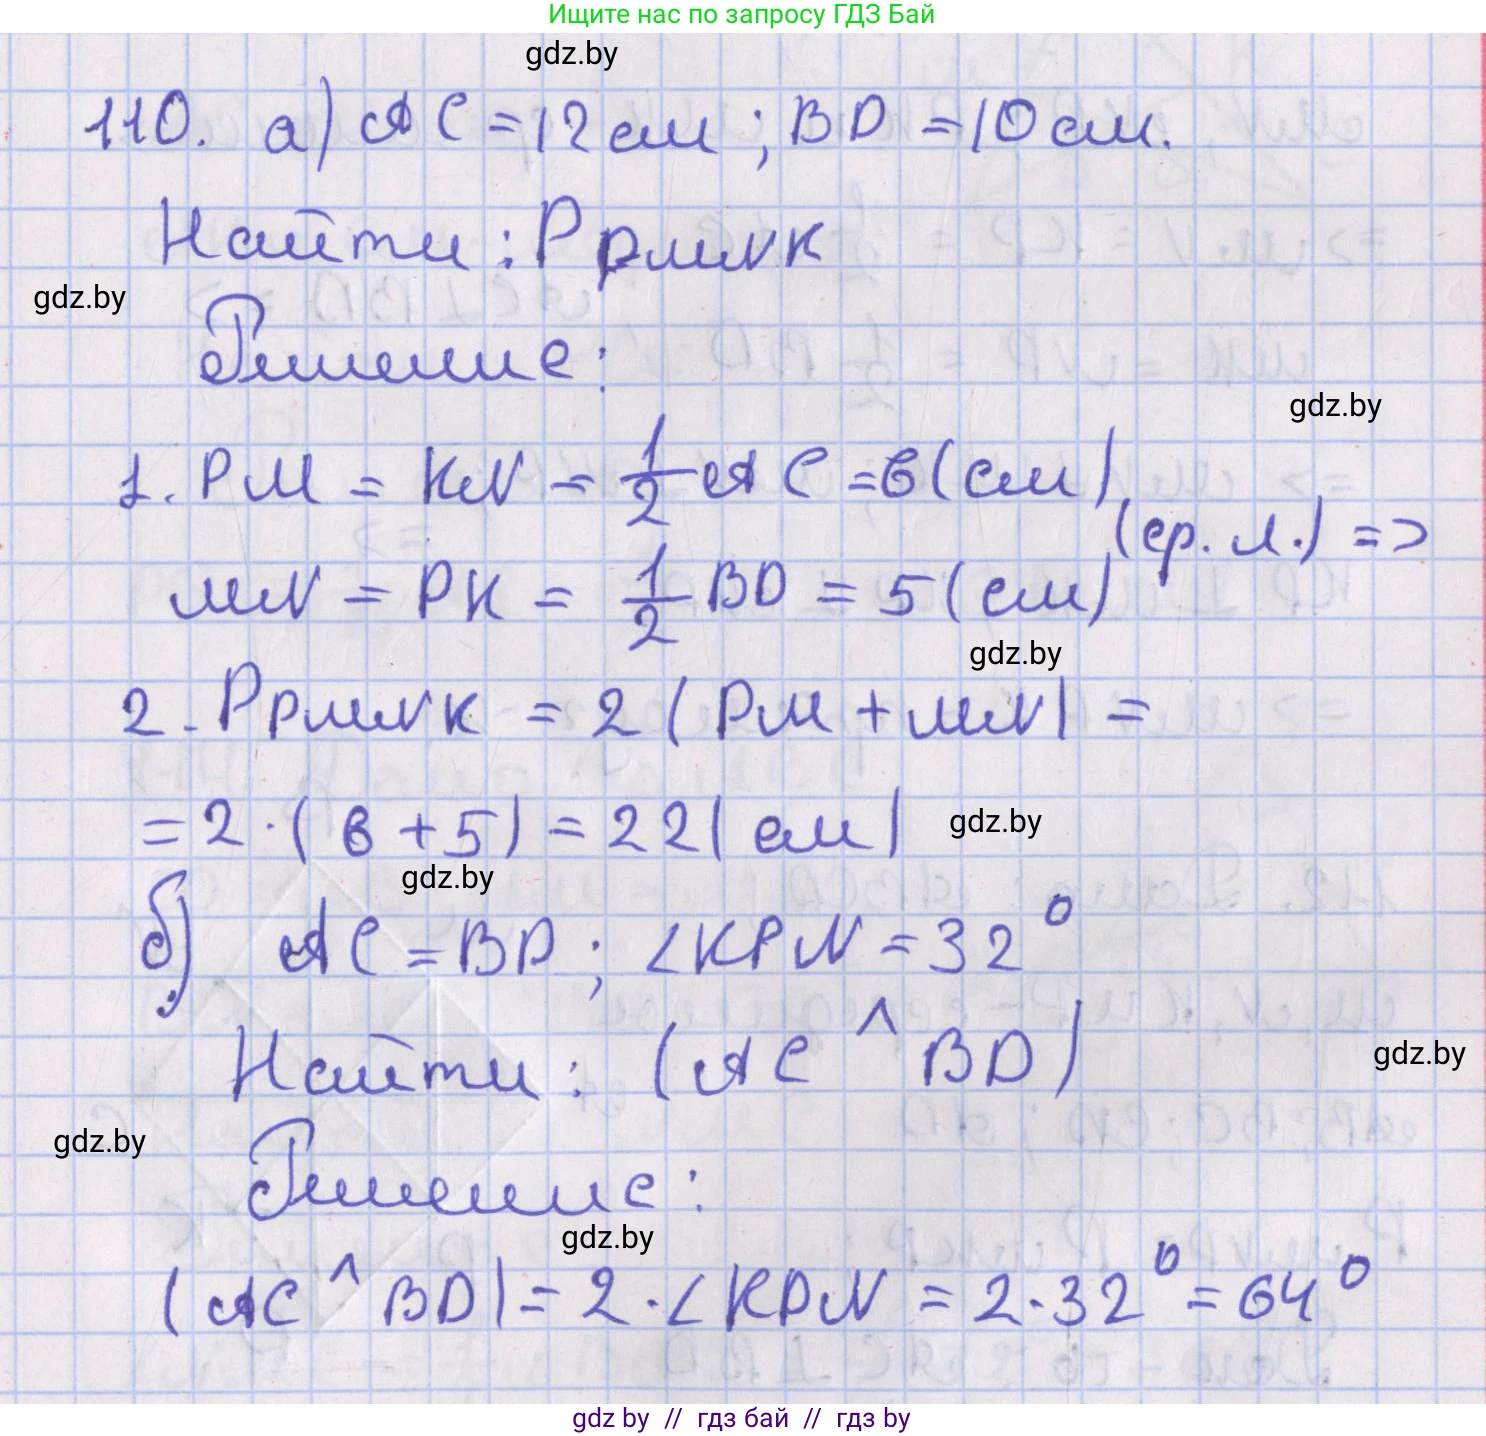 Ищите нас по запросу ГДЗ Бай
gdz.by
110. а) AC = 12 см ; BD = 10 см.
Найти : P PMNK
gdz.by
Решение :
gdz.by
1. PM = KN = 1/2 AC = 6 (см)
(ср. л.) =>
MN = PK = 1/2 BD = 5 (см)
gdz.by
2. P PMNK = 2 (PM + MN) =
= 2 · (6 + 5) = 22 (см)
gdz.by
gdz.by
б) AC = BD ; ∠KPN = 32°
Найти : (AC ^ BD)
gdz.by
gdz.by
Решение :
gdz.by
(AC ^ BD) = 2 · ∠KPN = 2 · 32° = 64°
gdz by // гдз бай // гдз by